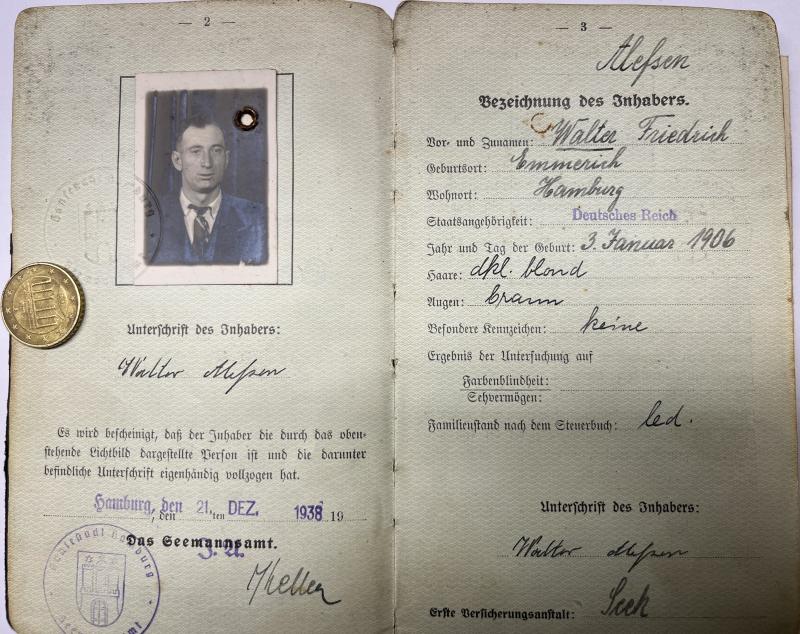 — 2 —
Hansestadt Hamburg
Unterschrift des Inhabers:
Walter Alefsen
Es wird bescheinigt, daß der Inhaber die durch das oben-
stehende Lichtbild dargestellte Person ist und die darunter
befindliche Unterschrift eigenhändig vollzogen hat.
Hamburg, den 21. DEZ. 1938
, den ten 19
Das Seemannsamt.
J. A.
Hansestadt Hamburg
Seemannsamt
— 3 —
Alefsen
Bezeichnung des Inhabers.
Vor- und Zunamen: Walter Friedrich
Geburtsort: Emmerich
Wohnort: Hamburg
Staatsangehörigkeit: Deutsches Reich
Jahr und Tag der Geburt: 3. Januar 1906
Haare: dkl. blond
Augen: braun
Besondere Kennzeichen: keine
Ergebnis der Untersuchung auf
Farbenblindheit:
Sehvermögen:
Familienstand nach dem Steuerbuch: led.
Unterschrift des Inhabers:
Walter Alefsen
Erste Versicherungsanstalt: Seek